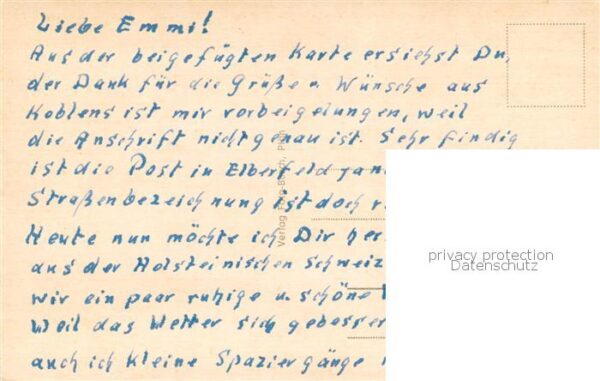 Liebe Emmi!
Aus der beigefügten Karte ersiehst Du,
der Dank für die Grüße u. Wünsche aus
Koblens ist mir vorbeigelungen, weil
die Anschrift nicht genau ist. Sehr findig
ist die Post in Elberfeld
Straßenbezeichnung ist doch
Heute nun möchte ich Dir
aus der Holsteinischen Schweiz
wir ein paar ruhige u. schöne
Weil das Wetter sich
auch ich kleine Spaziergänge
Verlag
privacy protection
Datenschutz